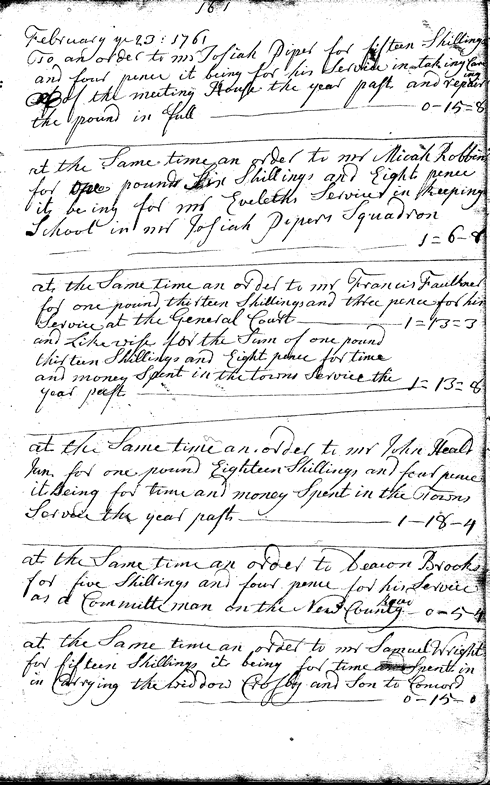 161
February ye 23: 1761
To an order to mr Josiah Piper for fifteen Shillings
and four pence it being for his Service in taking Care
of the meeting House the year past and repairing
the pound in full 0-15=8
at the Same time an order to mr Micah Robbins
for one pound Six Shillings and Eight pence
it being for mr Eveleths Service in keeping
School in mr Josiah Pipers Squadron
1=6-8
at the Same time an order to mr Francis Faulkner
for one pound thirteen Shillings and three pence for his
Service at the General Court 1=13=3
and Likewise for the Sum of one pound
thirteen Shillings and Eight pence for time
and money Spent in the towns Service the
year past 1=13=8
at the Same time an order to mr John Heald
Jun. for one pound Eighteen Shillings and four pence
it Being for time and money Spent in the Towns
Service the year past 1-18-4
at the Same time an order to Deacon Brooks
for five Shillings and four pence for his Service
as a Committe man on the New County 0-5-4
at the Same time an order to mr Samuel Wright
for fifteen Shillings it being for time Spent in
in Carrying the widdow Crosby and Son to Concord
0-15-0